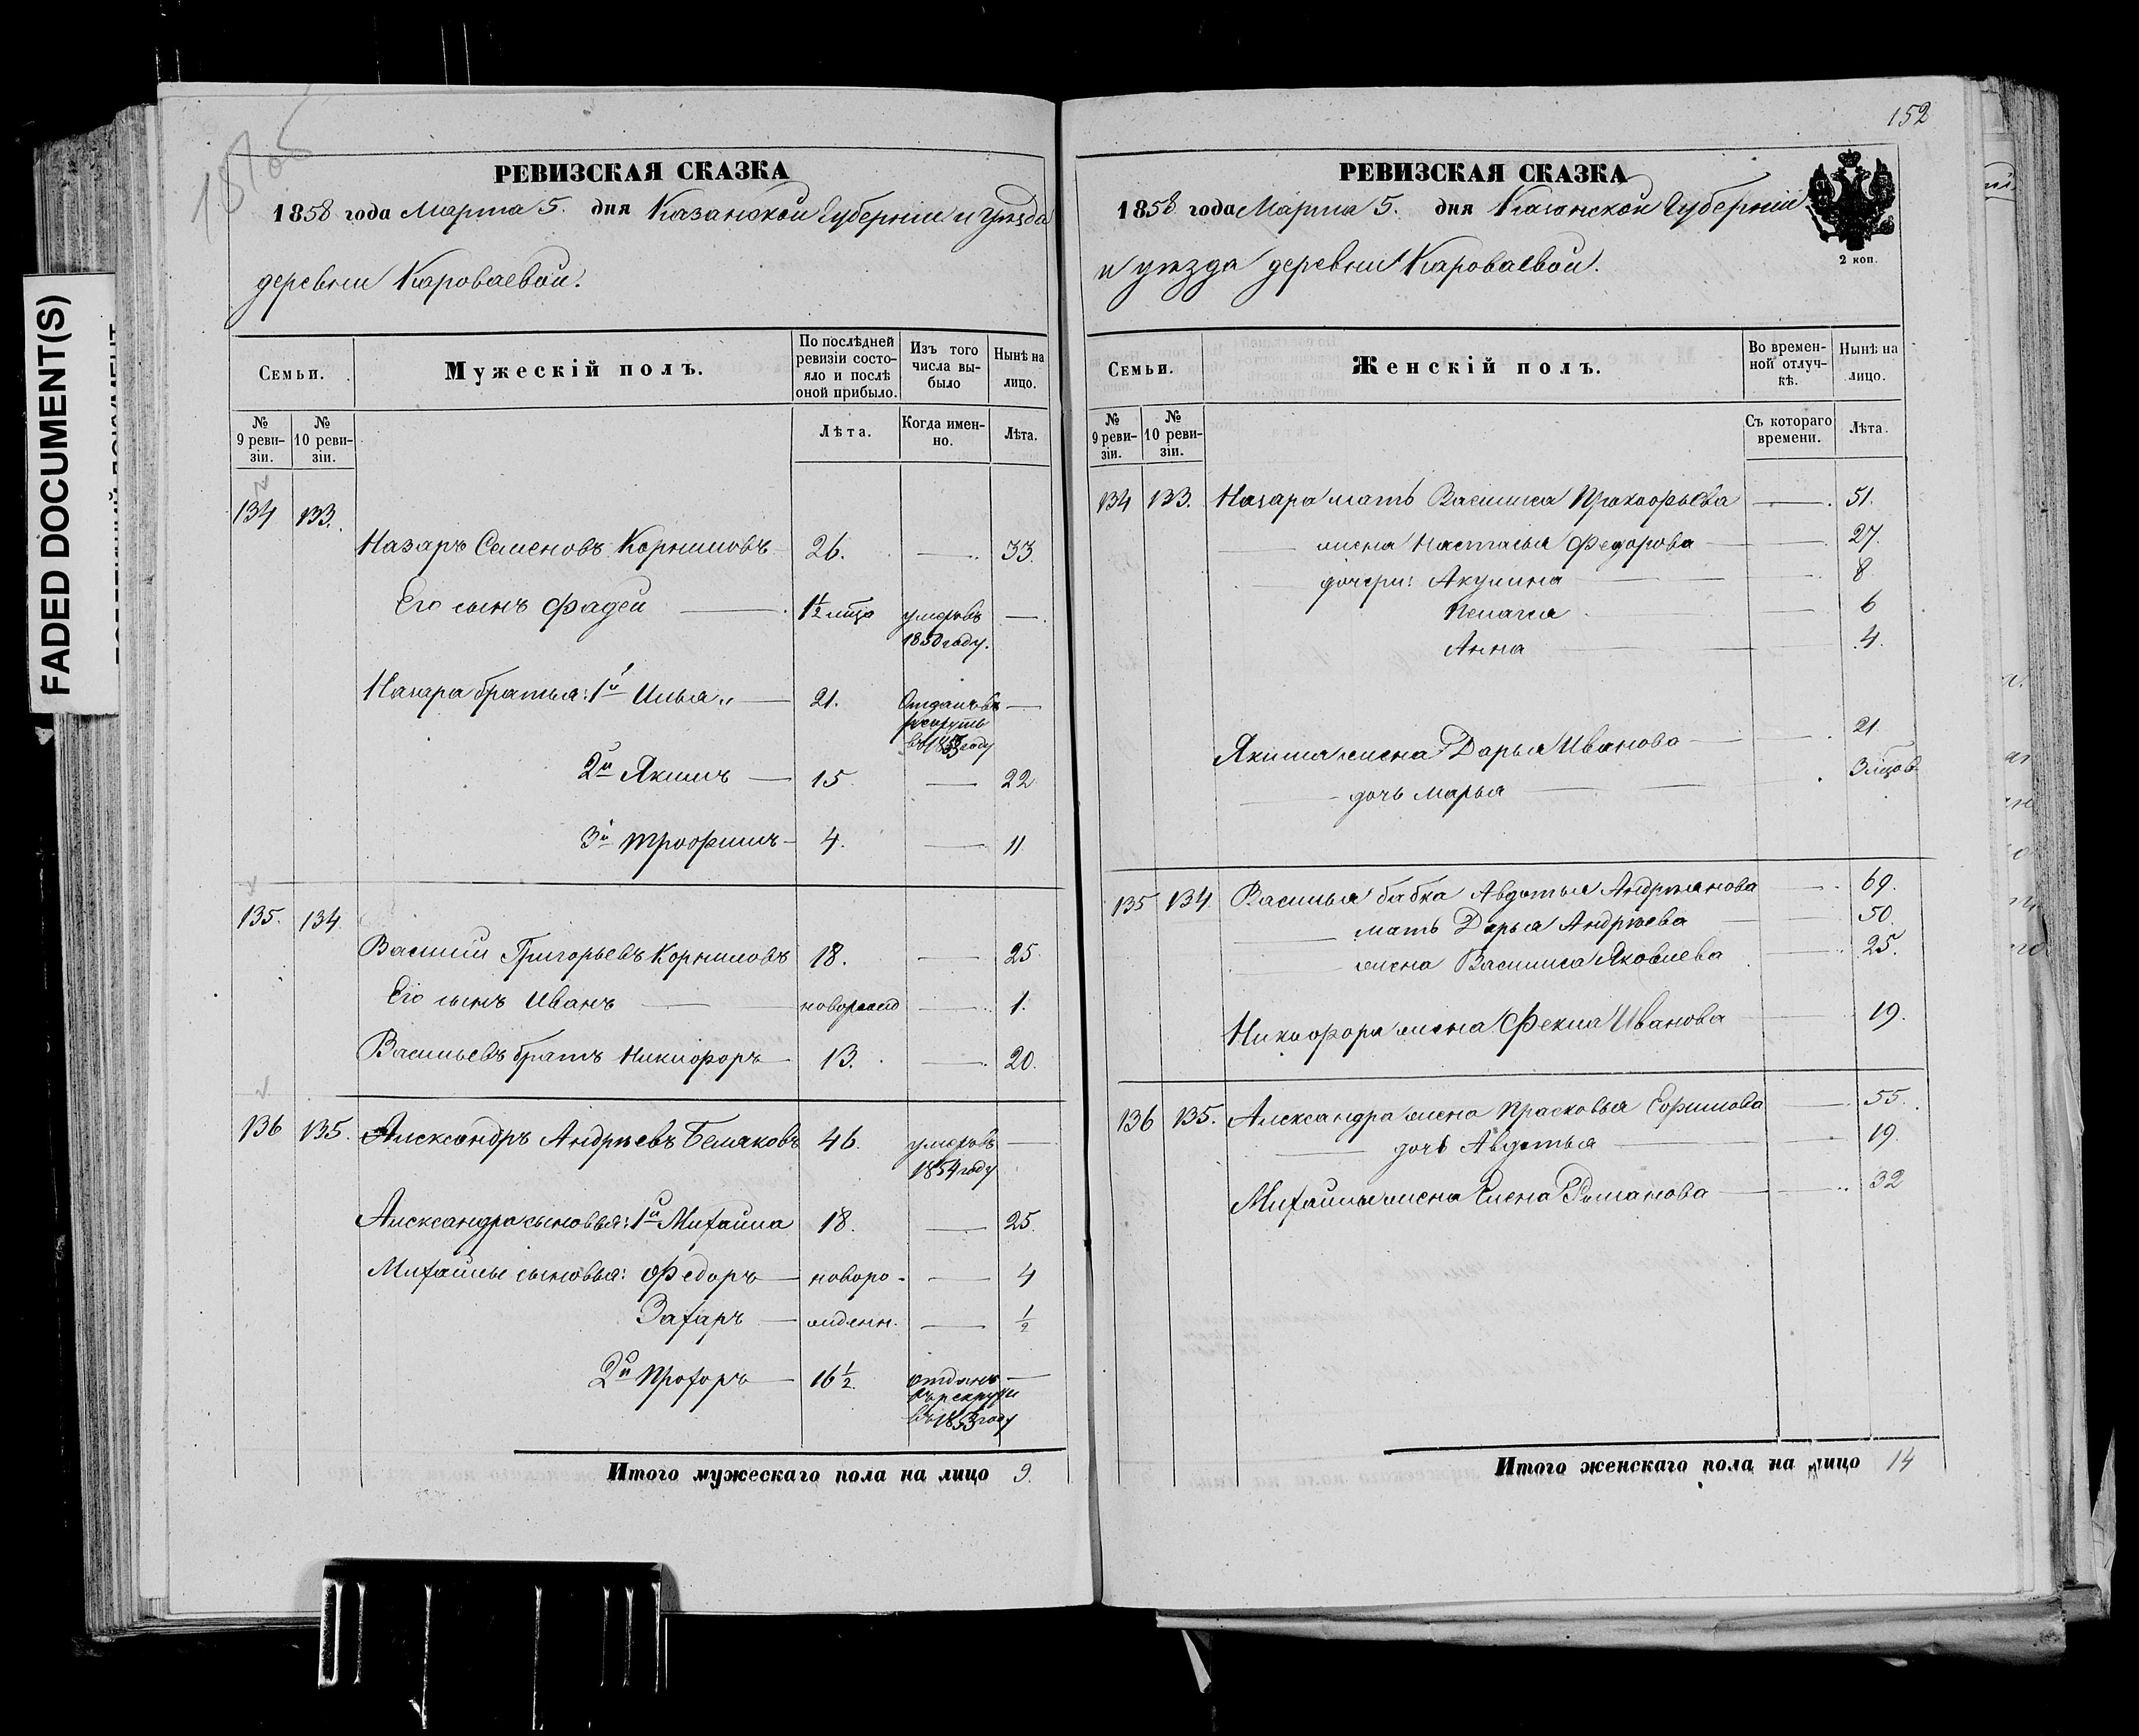 FADED DOCUMENT(S)
РЕВИЗСКАЯ СКАЗКА
1858 года Марта 5. дня Казанской Губернии и уѣзда
деревни Кароваевой.
Семьи.
Мужескій полъ.
По послѣдней ревизіи состояло и послѣ оной прибыло.
Изъ того числа выбыло
Нынѣ на лицо.
№ 9 ревизіи.
№ 10 ревизіи.
Лѣта.
Когда именно.
Лѣта.
134 133.
Назаръ Семеновъ Корниловъ 26. — 33.
Его сынъ Фадей — 1½ умеръ въ 1850 году. —
Назара братья: 1й Илья — 21. Отданъ въ рекруты въ 1853 году —
2й Якимъ — 15 — 22
3й Трофимъ — 4. — 11
135. 134.
Василий Григорьевъ Корниловъ 18. — 25.
Его сынъ Иванъ —новорожд — 1.
Васильевъ братъ Никифоръ — 13. — 20.
136 135. Александръ Андрѣевъ Беляковъ 46. умеръ въ 1854 году —
Александра сыновья: 1й Михайла 18. — 25.
Михайлы сыновья: Федоръ — новоро- — 4
Захаръ — жденн. — ½
2й Прохоръ — 16½ отданъ въ рекруты въ 1853 году —
Итого мужескаго пола на лицо 9.
152
РЕВИЗСКАЯ СКАЗКА
1858 года Марта 5. дня Казанской Губернии
и уѣзда деревни Кароваевой.
2 коп.
Семьи.
Женскій полъ.
Во временной отлучкѣ.
Нынѣ на лицо.
№ 9 ревизіи.
№ 10 ревизіи.
Съ котораго времени.
Лѣта.
134 133. Назара мать Василиса Прокофьева — 51.
— жена Настасья Федорова — 27.
— дочери: Акулина — 8
Пелагея — 6
Анна — 4.
Якима жена Дарья Иванова — 21.
— дочь Марья — 3
135 134 Василья бабка Авдотья Андрѣянова — 69.
— мать Дарья Андрѣева — 50.
— жена Василиса Яковлева — 25.
Никифора жена Фекла Иванова — 19.
136 135. Александра жена Прасковья Ефимова — 55.
— дочь Авдотья — 19.
Михайлы жена Елена Романова — 32
Итого женскаго пола на лицо 14